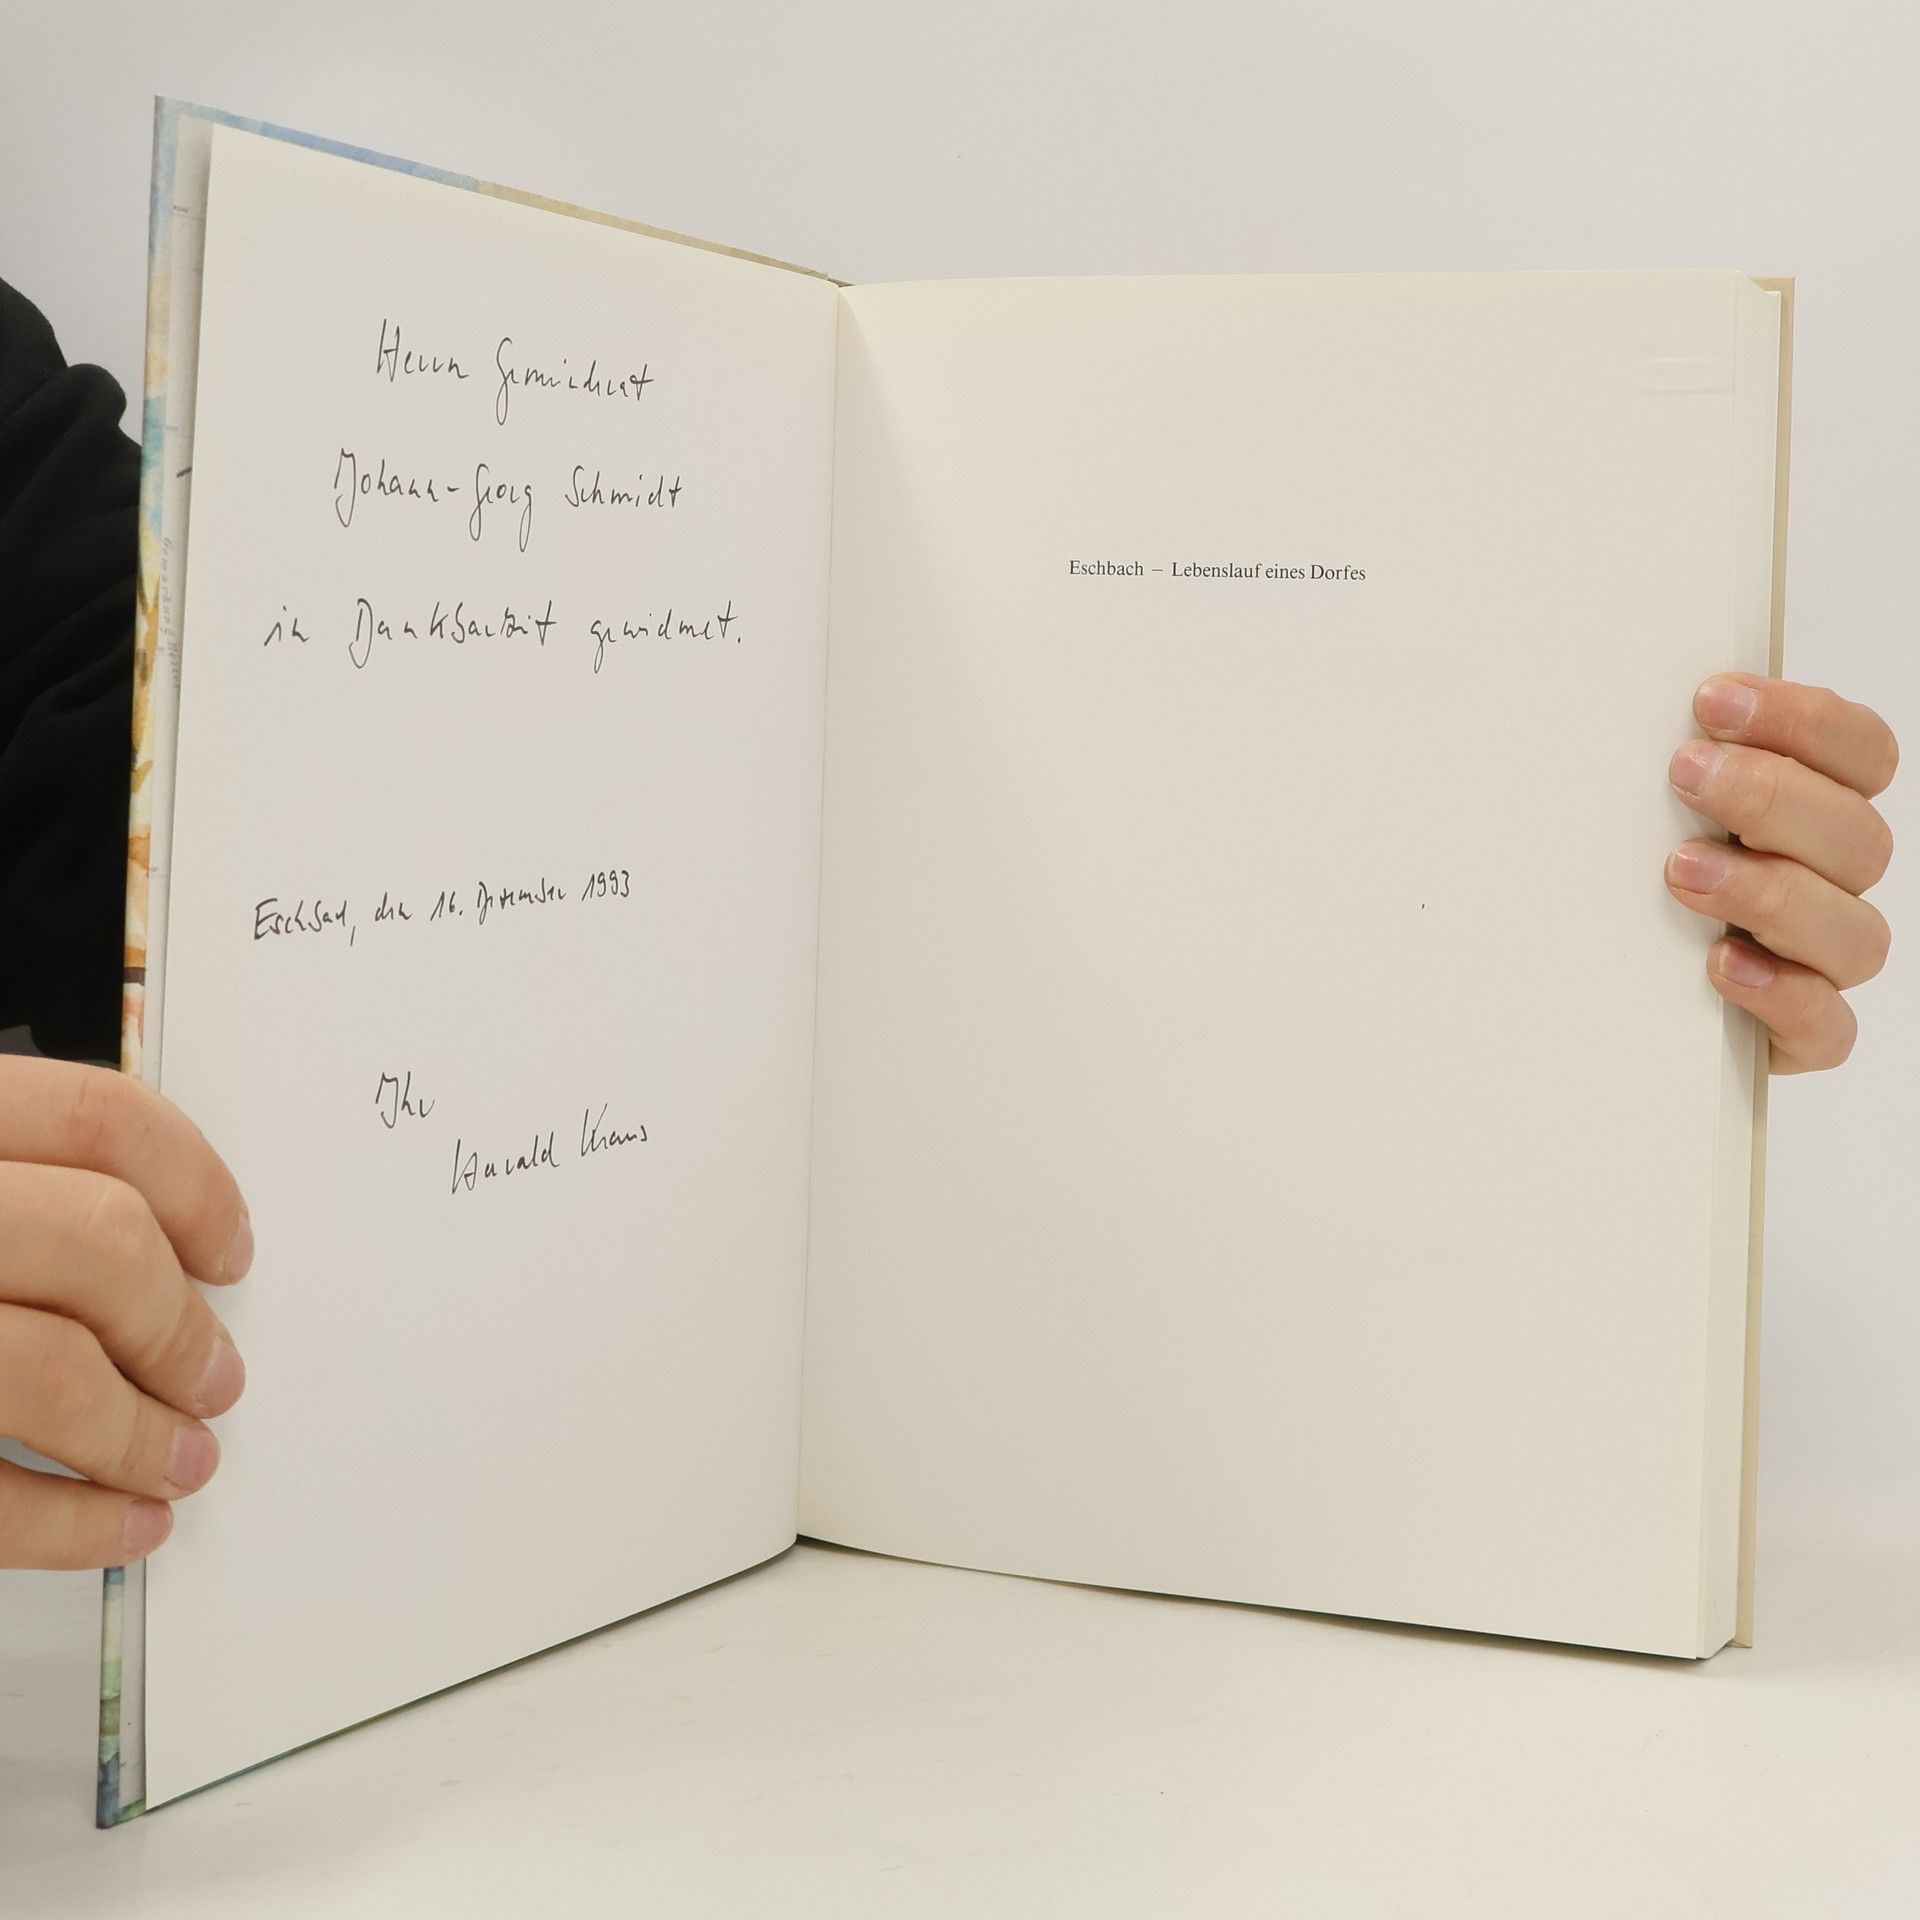 Herrn Gemeinderat
Johann-Georg Schmidt
in Dankbarkeit gewidmet.
Eschbach, den 16. Dezember 1993
Ihr
Harald Kraus
Eschbach – Lebenslauf eines Dorfes